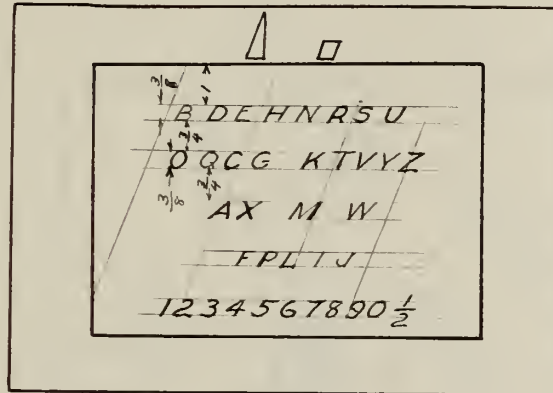 3/8 1
B D E H N R S U
3/4
O Q C G K T V Y Z
3/8 3/4
A X M W
F P L I J
1 2 3 4 5 6 7 8 9 0 1/2